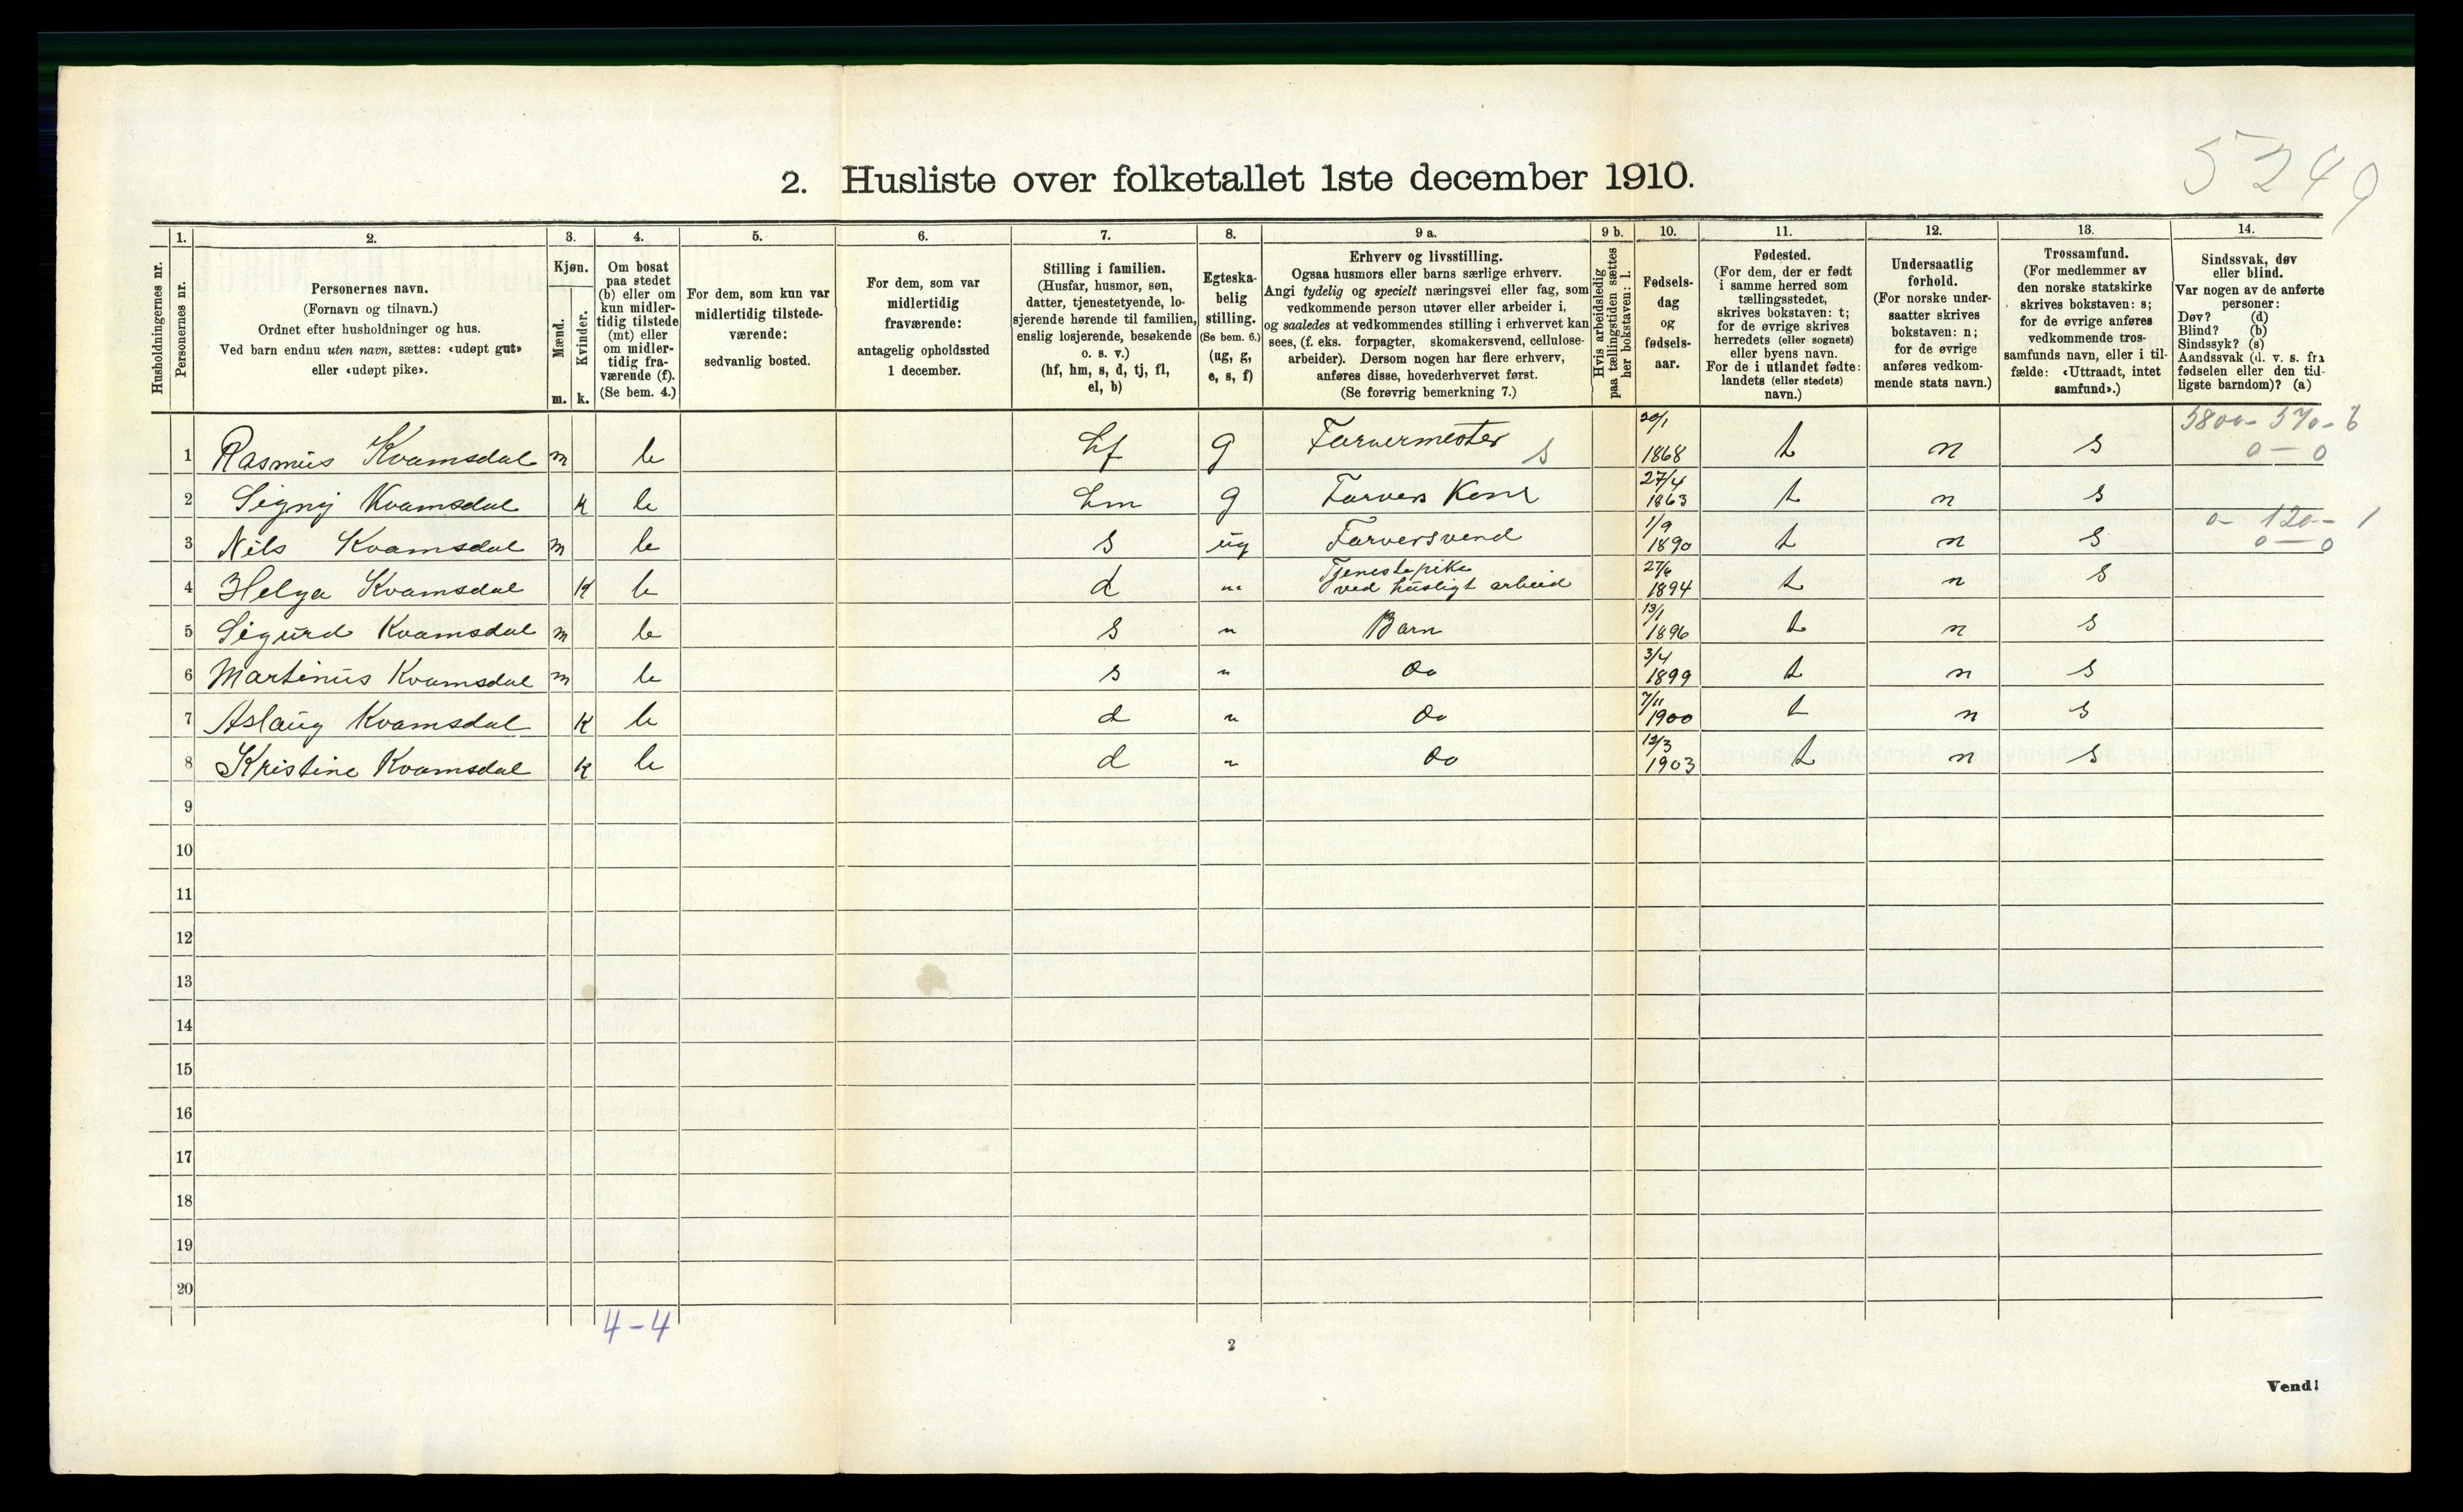 5249
2. Husliste over folketallet 1ste december 1910.
Husholdningernes nr.
1.
Personernes nr.
2.
Personernes navn.
(Fornavn og tilnavn.)
Ordnet efter husholdninger og hus.
Ved barn endnu uten navn, sættes: «udøpt gut»
eller «udøpt pike».
3.
Kjøn.
Mænd.
Kvinder.
m. k.
4.
Om bosat
paa stedet
(b) eller om
kun midler-
tidig tilstede
(mt) eller
om midler-
tidig fra-
værende (f).
(Se bem. 4.)
5.
For dem, som kun var
midlertidig tilstede-
værende:
sedvanlig bosted.
6.
For dem, som var
midlertidig
fraværende:
antagelig opholdssted
1 december.
7.
Stilling i familien.
(Husfar, husmor, søn,
datter, tjenestetyende, lo-
sjerende hørende til familien,
enslig losjerende, besøkende
o. s. v.)
(hf, hm, s, d, tj, fl,
el, b)
8.
Egteska-
belig
stilling.
(Se bem. 6.)
(ug, g,
e, s, f)
9 a.
Erhverv og livsstilling.
Ogsaa husmors eller barns særlige erhverv.
Angi tydelig og specielt næringsvei eller fag, som
vedkommende person utøver eller arbeider i,
og saaledes at vedkommendes stilling i erhvervet kan
sees, (f. eks. forpagter, skomakersvend, cellulose-
arbeider). Dersom nogen har flere erhverv,
anføres disse, hovederhvervet først.
(Se forøvrig bemerkning 7.)
9 b.
Hvis arbeidsledig
paa tællingstiden sættes
her bokstaven: l.
10.
Fødsels-
dag
og
fødsels-
aar.
11.
Fødested.
(For dem, der er født
i samme herred som
tællingsstedet,
skrives bokstaven: t;
for de øvrige skrives
herredets (eller sognets)
eller byens navn.
For de i utlandet fødte:
landets (eller stedets)
navn.)
12.
Undersaatlig
forhold.
(For norske under-
saatter skrives
bokstaven: n;
for de øvrige
anføres vedkom-
mende stats navn.)
13.
Trossamfund.
(For medlemmer av
den norske statskirke
skrives bokstaven: s;
for de øvrige anføres
vedkommende tros-
samfunds navn, eller i til-
fælde: «Uttraadt, intet
samfund».)
14.
Sindssvak, døv
eller blind.
Var nogen av de anførte
personer:
Døv? (d)
Blind? (b)
Sindssyk? (s)
Aandssvak (d. v. s. fra
fødselen eller den tid-
ligste barndom)? (a)
1 Rasmus Kvamsdal m b hf g Farvermester s 20/1 1868 t n s 5800-570-6 0-0
2 Signy Kvamsdal k b hm g Farvers Kone 27/4 1863 t n s
3 Nils Kvamsdal m b s ug Farversvend 1/9 1890 t n s 0-120-1 0-0
4 Helga Kvamsdal k b d " Tjenestepike ved husligt arbeid 27/6 1894 t n s
5 Sigurd Kvamsdal m b s " Barn 13/1 1896 t n s
6 Martinus Kvamsdal m b s " Do 3/4 1899 t n s
7 Aslaug Kvamsdal k b d " Do 7/11 1900 t n s
8 Kristine Kvamsdal k b d " Do 12/3 1903 t n s
9
10
11
12
13
14
15
16
17
18
19
20
4-4
2
Vend!